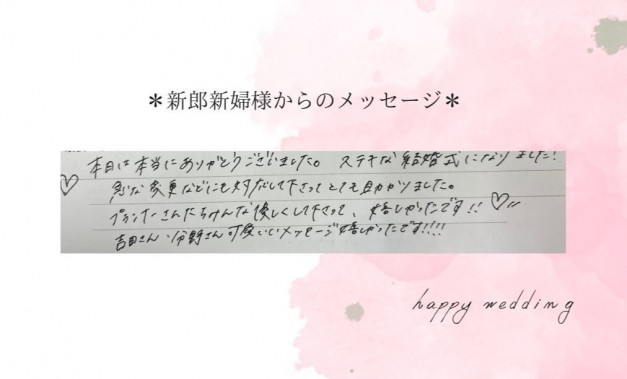 ＊新郎新婦様からのメッセージ＊
本日は本当にありがとうございました。 ステキな結婚式になりました!
急な変更などにも対応して下さってとても助かりました。
プランナーさんたちみんな優しくして下さって、嬉しかったです!!
吉田さん、分野さん可愛いいメッセージ嬉しかったです!!!!
happy wedding